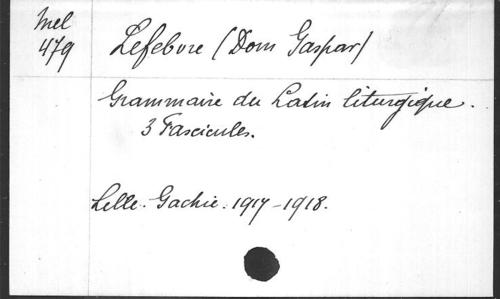 Mel
479
Lefebvre (Dom Gaspar)
Grammaire du Latin liturgique.
3 Fascicules.
Lille. Gachie. 1917-1918.